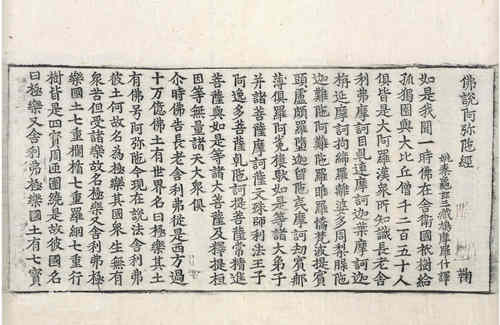 佛說阿弥陁經 鞠
姚秦龜茲三藏鳩摩羅什譯
如是我聞一時佛在舎衛國祇樹給
孤獨園與大比丘僧千二百五十人
俱皆是大阿羅漢衆所知識長老舎
利弗摩訶目乹連摩訶迦葉摩訶迦
栴延摩訶拘絺羅離婆多周利槃陁
迦難陁阿難陁羅睺羅憍梵波提賓
頭盧頗羅墮迦留陁夷摩訶劫賓那
薄俱羅阿㝹樓馱如是等諸大弟子
并諸菩薩摩訶薩文殊師利法王子
阿逸多菩薩乹陁訶提菩薩常精進
菩薩與如是等諸大菩薩及釋提桓
因等無量諸天大衆俱
尒時佛告長老舎利弗從是西方過
十万億佛土有世界名曰極樂其土
有佛号阿弥陁今現在說法舎利弗
彼土何故名為極樂其國衆生無有
衆苦但受諸樂故名極樂又舎利弗極
樂國土七重欄楯七重羅網七重行
樹皆是四寳周匝圍繞是故彼國名
曰極樂又舎利弗極樂國土有七寳